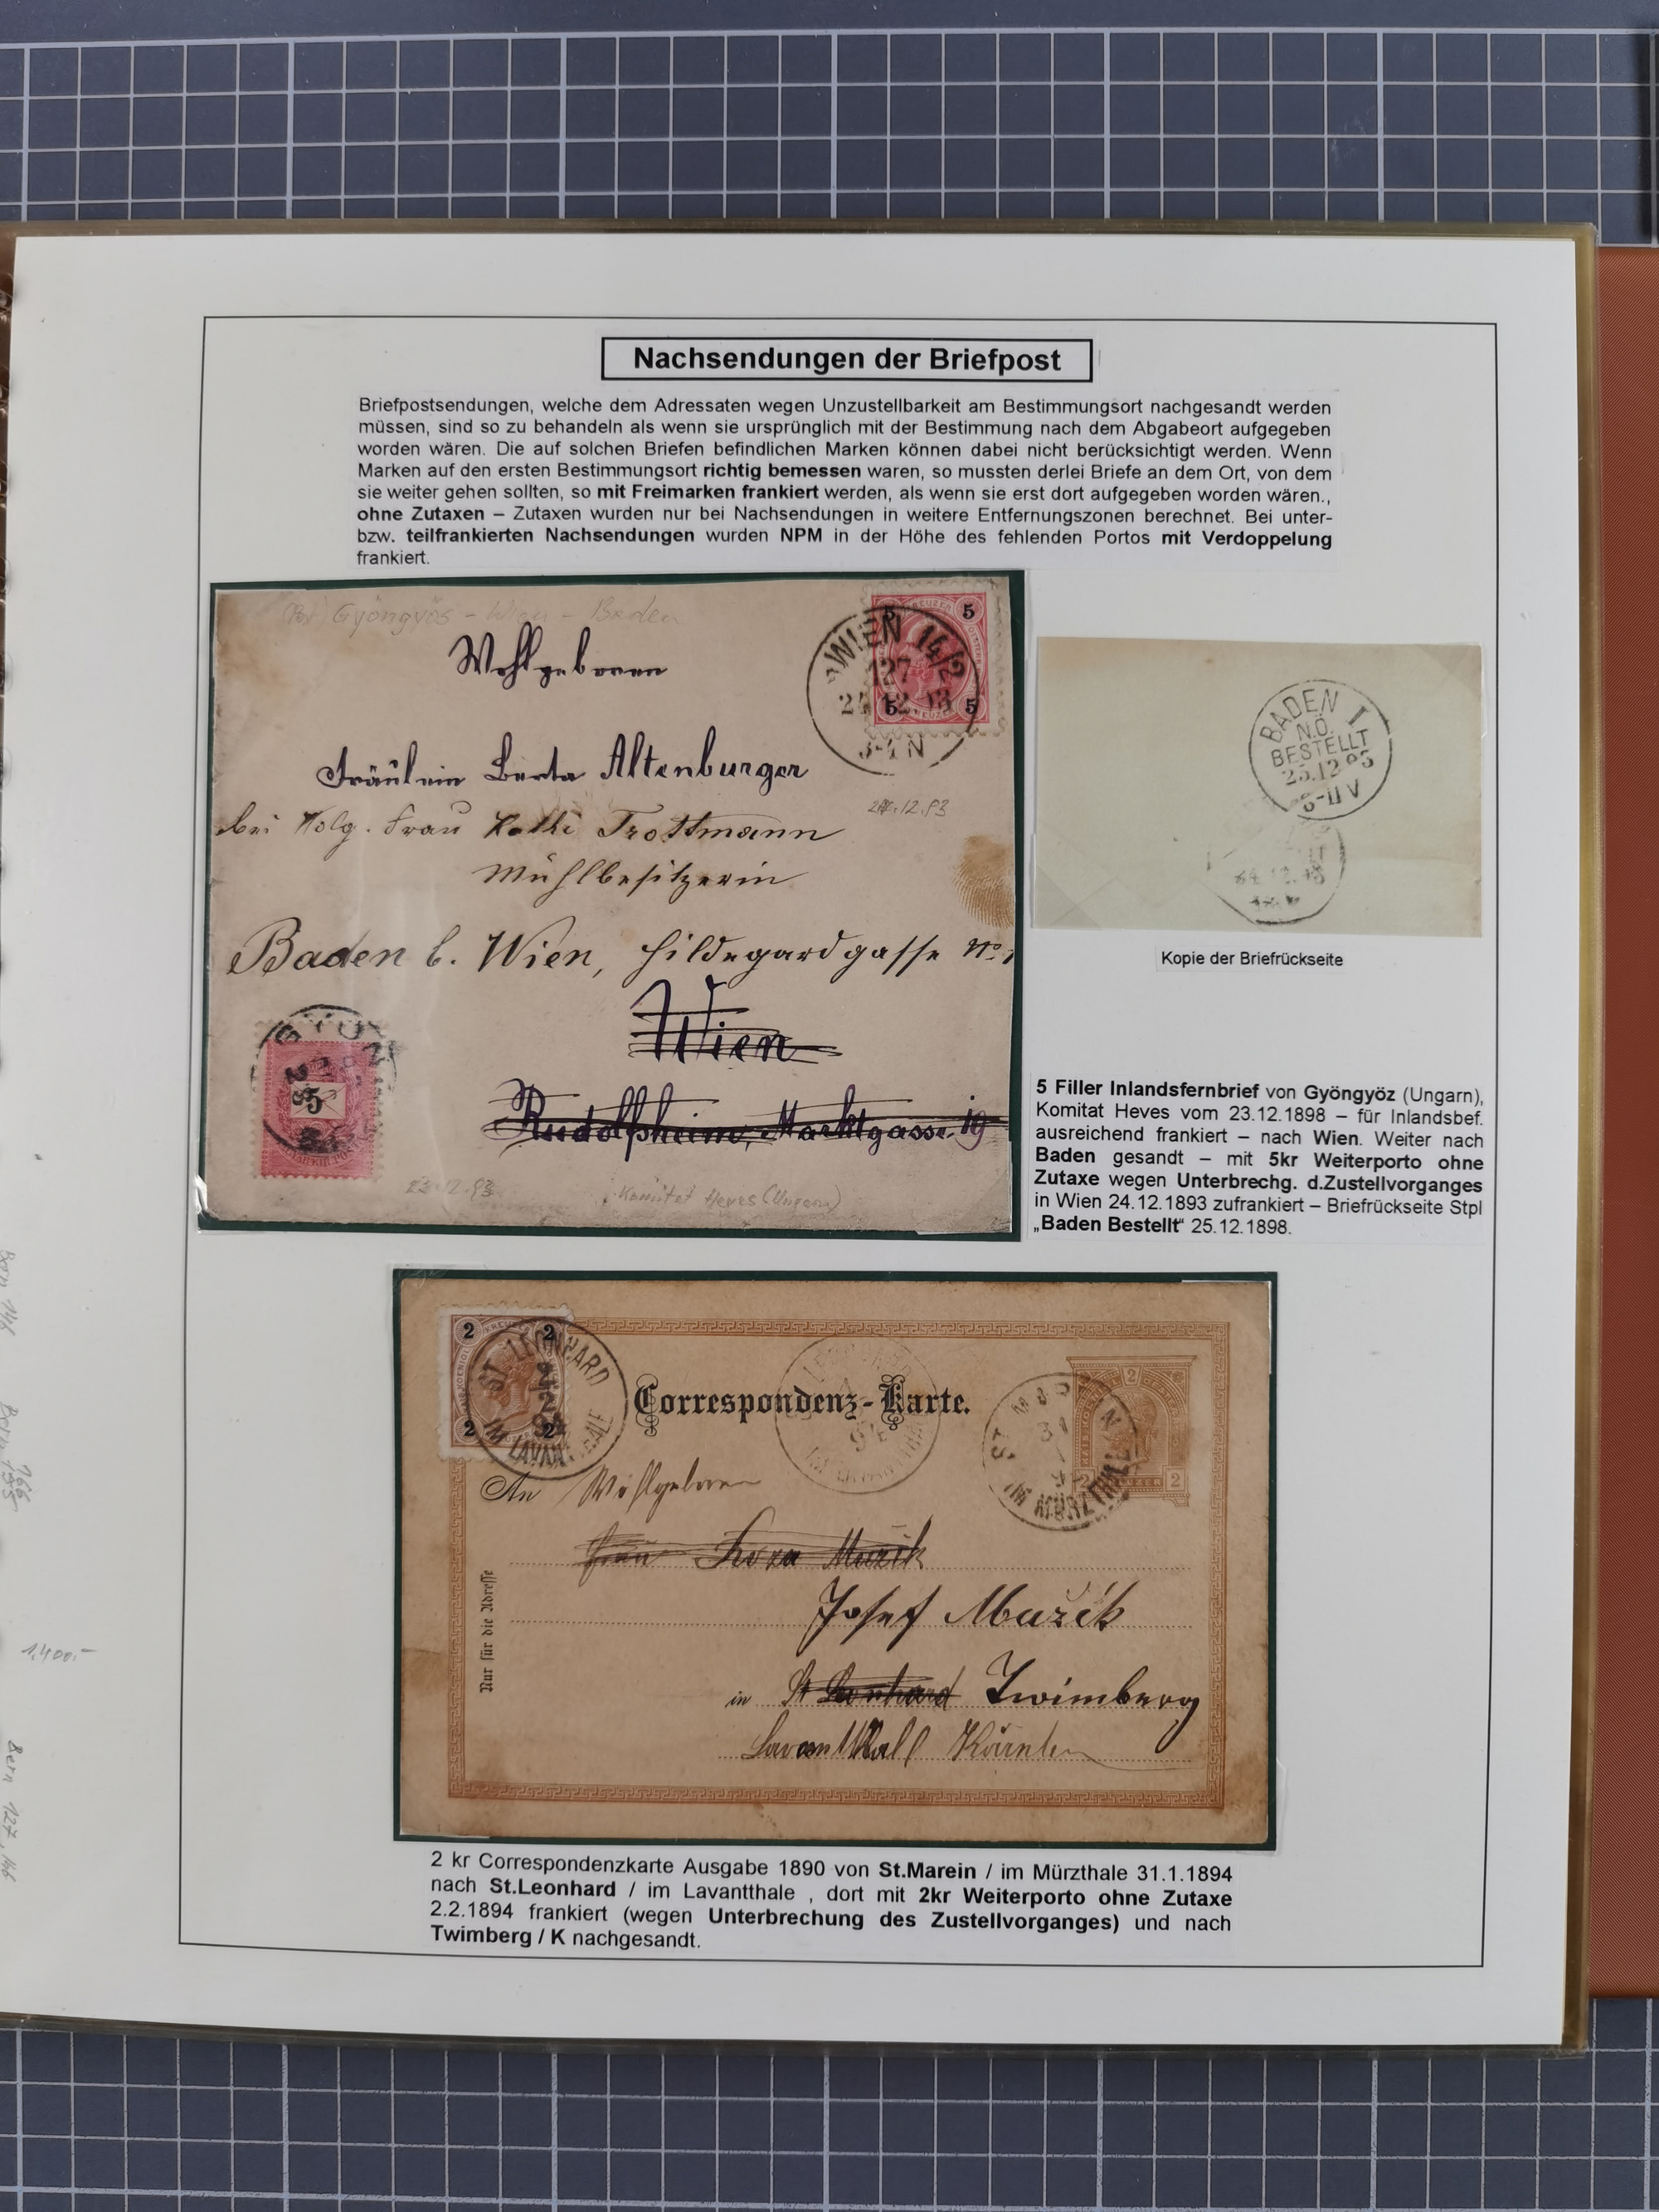 Nachsendungen der Briefpost
Briefpostsendungen, welche dem Adressaten wegen Unzustellbarkeit am Bestimmungsort nachgesandt werden
müssen, sind so zu behandeln als wenn sie ursprünglich mit der Bestimmung nach dem Abgabeort aufgegeben
worden wären. Die auf solchen Briefen befindlichen Marken können dabei nicht berücksichtigt werden. Wenn
Marken auf den ersten Bestimmungsort richtig bemessen waren, so mussten derlei Briefe an dem Ort, von dem
sie weiter gehen sollten, so mit Freimarken frankiert werden, als wenn sie erst dort aufgegeben worden wären.,
ohne Zutaxen – Zutaxen wurden nur bei Nachsendungen in weitere Entfernungszonen berechnet. Bei unter-
bzw. teilfrankierten Nachsendungen wurden NPM in der Höhe des fehlenden Portos mit Verdoppelung
frankiert.
Gyöngyös - Wien - Baden
Wohlgeboren
WIEN 14/2
127
3-4 N
5 5
5 5
Fräulein Berta Altenburger
24.12.93
bei Frau Kathi Trottmann
Mühlbesitzerin
Baden b. Wien, Hildegardgasse No.
Wien
Rudolfsheim, Marktgasse 19
5
23.12.93
Komitat Heves (Ungarn)
BADEN 1
N.Ö.
BESTELLT
Kopie der Briefrückseite
5 Filler Inlandsfernbrief von Gyöngyöz (Ungarn),
Komitat Heves vom 23.12.1898 – für Inlandsbef.
ausreichend frankiert – nach Wien. Weiter nach
Baden gesandt – mit 5kr Weiterporto ohne
Zutaxe wegen Unterbrechg. d.Zustellvorganges
in Wien 24.12.1893 zufrankiert – Briefrückseite Stpl
„Baden Bestellt“ 25.12.1898.
2 2
2 2
ST. LEONHARD
IM LAVANTTHALE
Correspondenz-Karte.
2
2 2
IM MÜRZTHALE
An Wohlgeboren
Frau Muzik
Josef Mužik
in St Leonhard Twimberg
Lavantthal Kärnten
Nur für die Adresse
2 kr Correspondenzkarte Ausgabe 1890 von St.Marein / im Mürzthale 31.1.1894
nach St.Leonhard / im Lavantthale , dort mit 2kr Weiterporto ohne Zutaxe
2.2.1894 frankiert (wegen Unterbrechung des Zustellvorganges) und nach
Twimberg / K nachgesandt.
1.400.-
Bern 127, 146